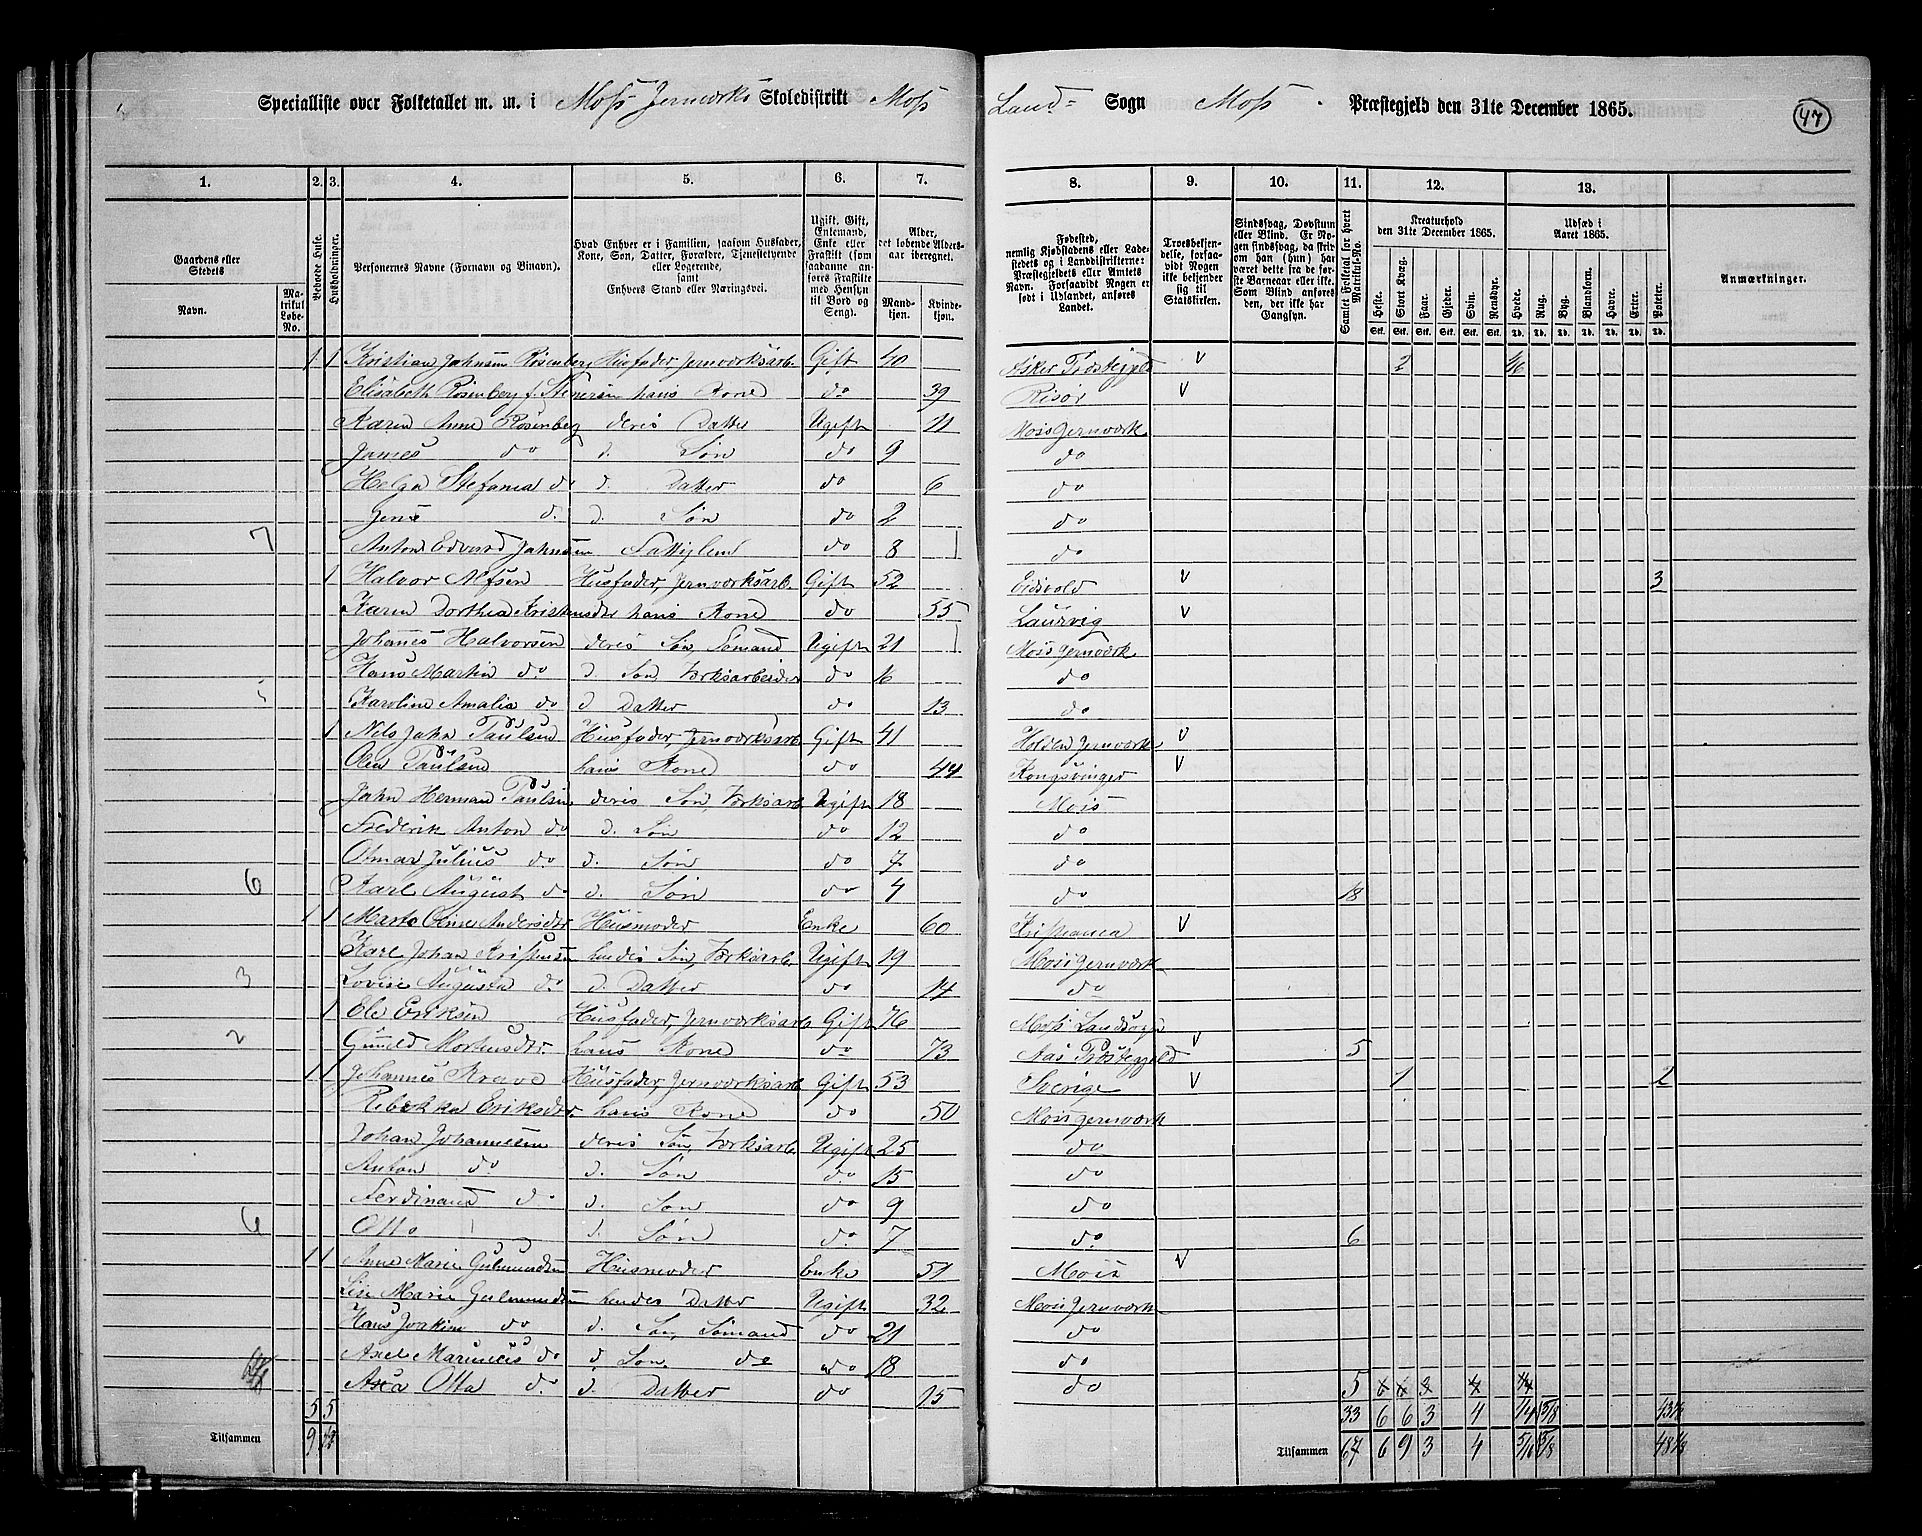 Specialliste over Folketallet m. m. i Moss Jernværks Skoledistrikt Moss Land= Sogn Moss Præstegjeld den 31te December 1865.
47
1. 2. 3. 4. 5. 6. 7. 8. 9. 10. 11. 12. 13.
Gaardens eller Stedets
Navn.
Matrikul Løbe-No.
Beboede Huse.
Husholdninger.
Personernes Navne (Fornavn og Binavn).
Hvad Enhver er i Familien, saasom Husfader, Kone, Søn, Datter, Forældre, Tjenestetyende eller Logerende, samt Enhvers Stand eller Næringsvei.
Ugift, Gift, Enkemand, Enke eller Fraskilt (som saadanne anføres Fraskilte med Hensyn til Bord og Seng).
Alder, det løbende Alders-aar iberegnet.
Mand-kjøn.
Kvinde-kjøn.
Fødested, nemlig Kjøbstadens eller Ladestedets og i Landdistrikterne: Præstegjeldets eller Amtets Navn. Forsaavidt Nogen er født i Udlandet, anføres Landet.
Troesbekjendelse, forsaavidt Nogen ikke bekjender sig til Statskirken.
Sindssvag, Døvstum eller Blind. Er Nogen sindssvag, da skrives om han (hun) har været dette fra de første Barneaar eller ikke. Som Blind anføres den, der ikke har Gangsyn.
Samlet Folketal for hvert Matrikul-No.
Kreaturhold den 31te December 1865.
Heste. Stort Kvæg. Faar. Gjeder. Svin. Rensdyr.
Udsæd i Aaret 1865.
Hvede. Rug. Byg. Blandkorn. Havre. Erter. Poteter.
Anmærkninger.
1 1 Kristian Johnsen Rosenberg Husfader, Jernværksarb. Gift 40 Asker Præstegjeld v 2
Elisabeth Rosenberg f. Stenersen hans Kone do 39 Risør v
Karen Anne Rosenberg deres Datter Ugift 11 Moss Jernværk
James do d. Søn do 9 do
Helga Stefania do d. Datter do 6 do
Jens d. d. Søn do 2 do
7 Anton Edvard Johnsen Fattiglem do 8 do
1 Halvor Alfsen Husfader, Jernværksarb. Gift 52 Eidsvold v 3
Karen Dorthea Kristensdtr hans Kone do 55 Laurvig v
Johannes Halvorsen deres Søn, Sømand Ugift 21 Moss Jernværk
Hans Martin do d. Søn, Værksarbeider do 16 do
5 Karoline Amalia do d Datter do 13 do
1 Nils John Paulsen Husfader, Jernværksarb. Gift 41 Holden Jernværk v
Olea Paulsen hans Kone do 44 Kongsvinger v
John Herman Paulsen deres Søn, Værksarb. Ugift 18 Moss
Frederik Anton do d. Søn do 12 do
Otmar Julius do d. Søn do 7 do
6 Karl August do d. Søn do 4 do 18
1 1 Marte Oline Andersdtr Husmoder Enke 60 Kristiania v
Karl Johan Kristensen hendes Søn, Værksarb. Ugift 19 Moss Jernværk
3 Lovise Augusta do d. Datter do 14 do
1 Ole Eriksen Husfader, Jernværksarb. Gift 76 Moss Landsogn
2 Gunild Mortensdtr. hans Kone do 73 Aas Præstegjeld v 5
1 1 Johannes Husfader, Jernværksarb. Gift 53 Sverige v 1 2
Rebekka Eriksdtr. hans Kone do 50 Moss Jernværk
Johan Johannessen deres Søn, Værksarb. Ugift 25 do
Anton do d. Søn do 15 do
Ferdinand do d. Søn do 9 do
6 Otto d. Søn do 7 do 6
1 1 Anne Marie Gulmundsen Husmoder Enke 51 Moss v
Lise Marie Gulmundsen hendes Datter Ugift 32 Moss Jernværk
Hans Joakim do d. Søn, Sømand do 21 do
Axel Marinius do d. Søn do do 18 do
Otta do d. Datter do 15 do 5
5 5 33 6 6 3 4
Tilsammen 9 Tilsammen 67 6 9 3 4